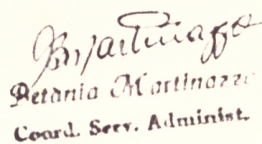 Betania Martinazzo
Coord. Serv. Administ.